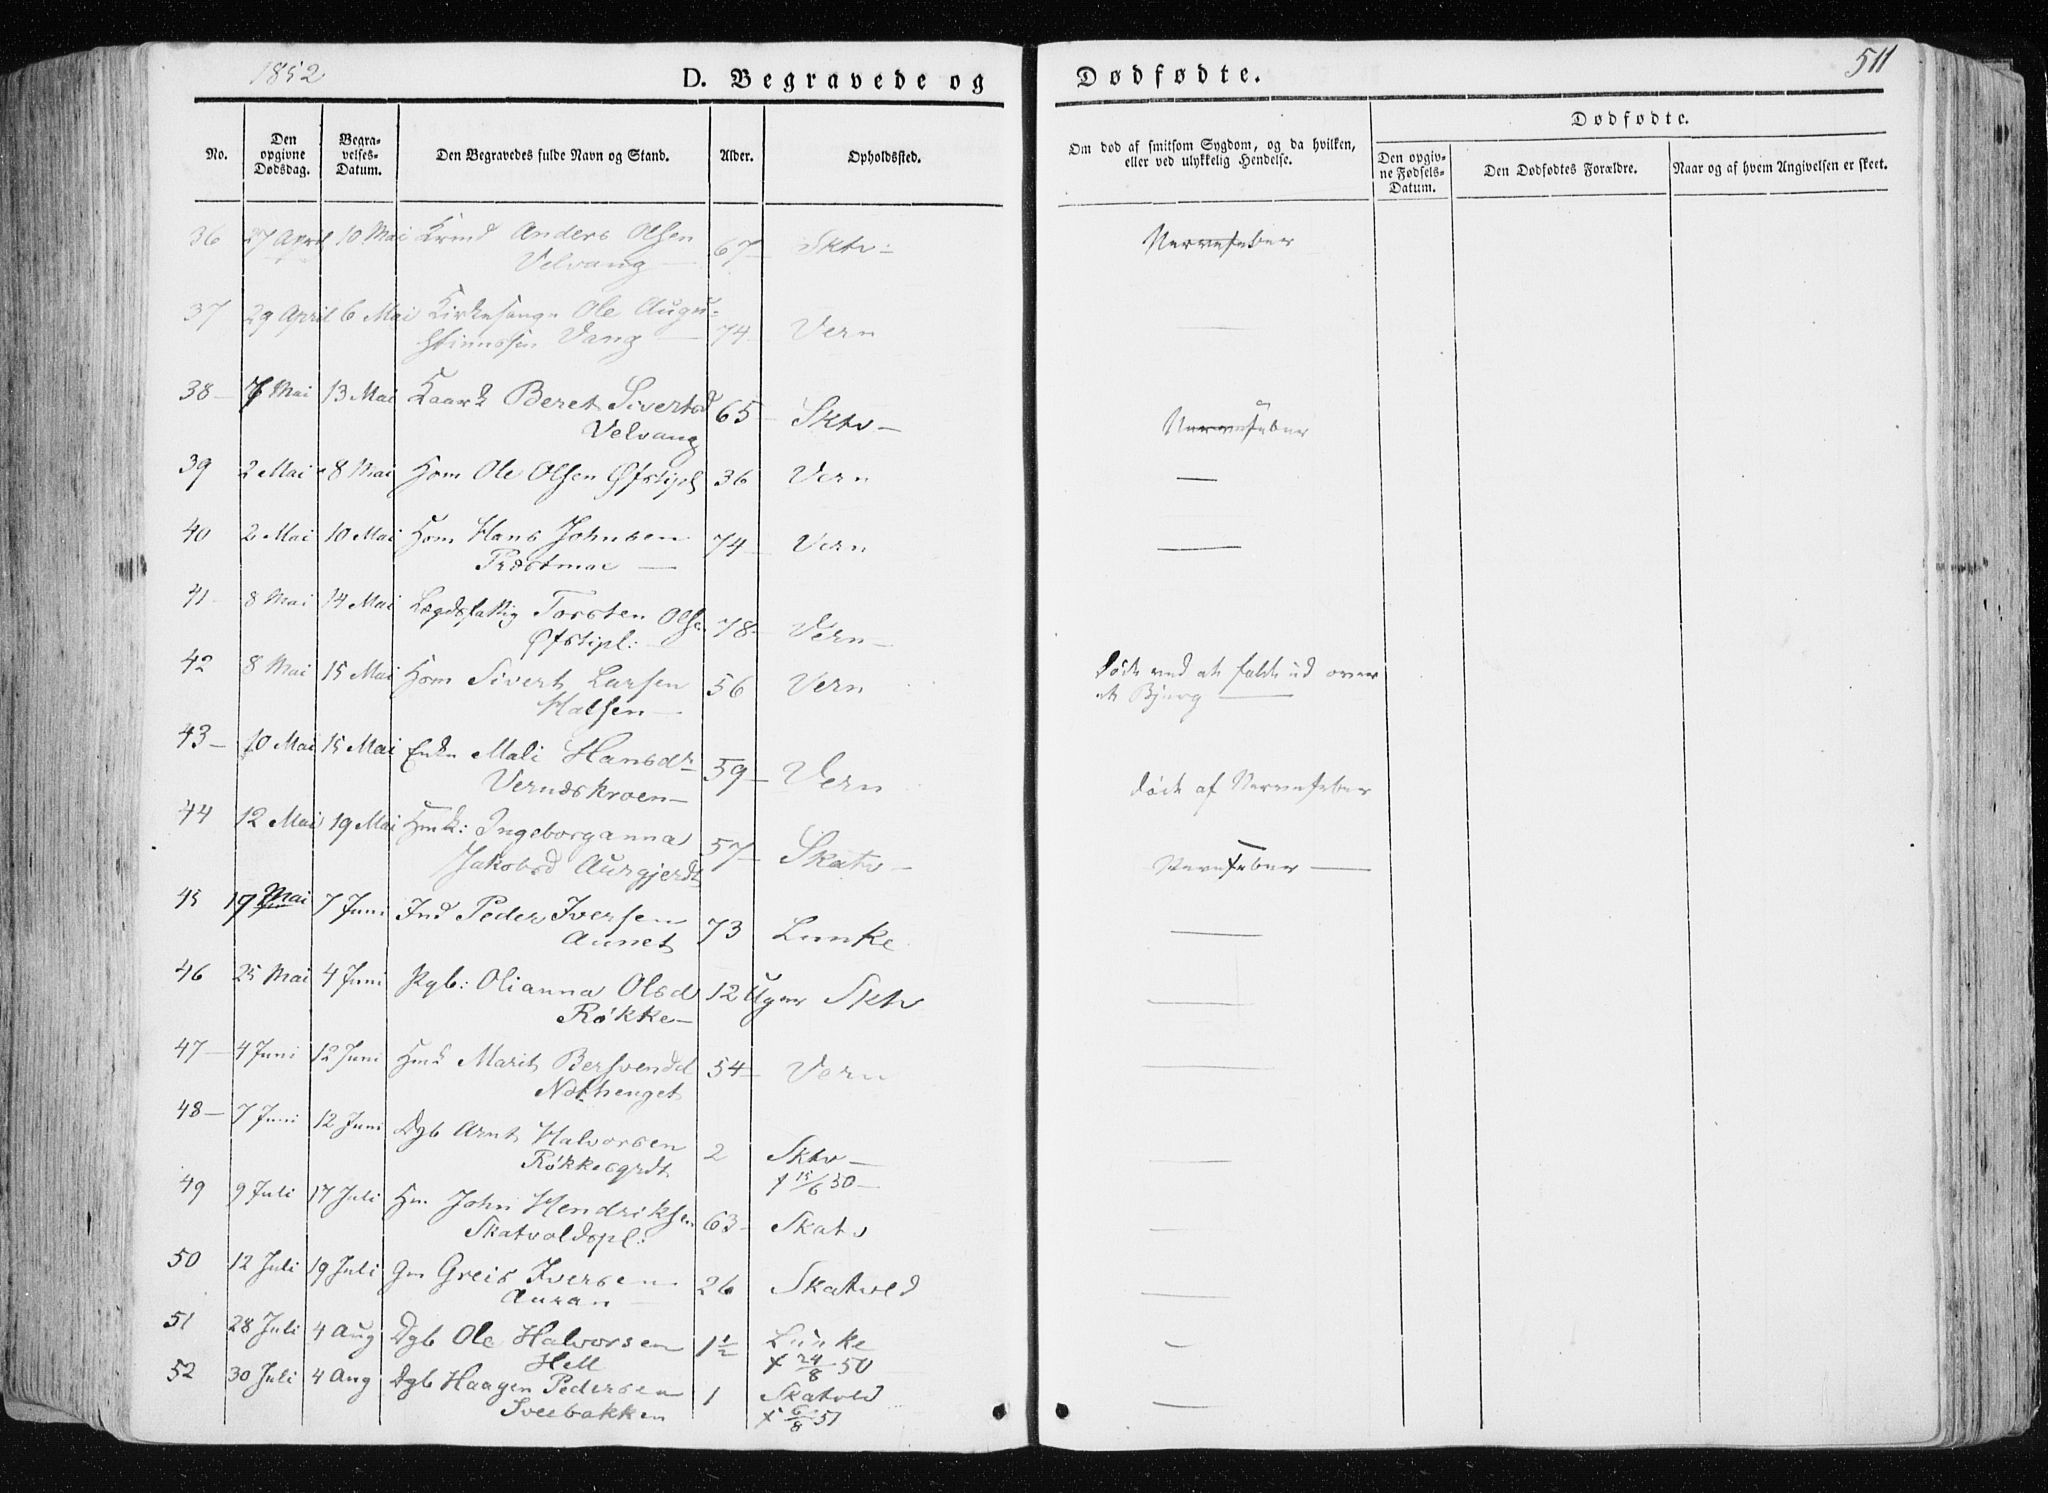 1852
D. Begravede og Dødfødte.
511
No.
Den opgivne Dødsdag.
Begravelses-Datum.
Den Begravedes fulde Navn og Stand.
Alder.
Opholdssted.
Om død af smitsom Sygdom, og da hvilken, eller ved ulykkelig Hendelse.
Dødfødte.
Den opgivne Fødsels-Datum.
Den Dødfødtes Forældre.
Naar og af hvem Angivelsen er skeet.
36 27 April 10 Mai Anders Olsen 67 — Sktv: Nervefeber
Velvang —
37 29 April 6 Mai Kirkesang. Ole Augu-
stinussen Vang — 74 — Vern —
38 — 7 Mai 13 Mai Kaark Beret Sivertsd 65 — Sktv — Nervefeber
Velvang
39 2 Mai 8 Mai Hom Ole Olsen Øfstipl 36 Vern —
40 2 Mai 10 Mai Hom Hans Johnsen 74 — Vern —
Præstmoe —
41 — 8 Mai 14 Mai Lægdsfattig Torsten Olsen 78 — Vern —
Øfstipl:
42 8 Mai 15 Mai Hom Sivert Larsen 56 Vern Døde ved at falde ud over
Halsen — et Bjerg —
43 — 10 Mai 15 Mai Enke Mali Hansdr 59 — Vern døde af Nervefeber
Verneskroen —
44 12 Mai 19 Mai Hmk: Ingeborganna 57 — Skatv — Nervefeber —
Jakobsd Aurgjerdt
45 19 Mai 7 Juni Ind Peder Iversen 73 Lunke —
Aunet
46 25 Mai 4 Juni Pgb: Olianna Olsd 12 Uger Sktv —
Røkke —
47 — 4 Juni 12 Juni Hmk Marit Bersvendd 54 — Vern —
Næshenget
48 — 7 Juni 12 Juni Dgb Arnt Halvorsen 2 Sktv — —
Røkkesgrdt + 15/6 50 —
49 9 Juli 17 Juli Hm John Hendriksen 63 — Skatv —
Skatvoldspl:
50 12 Juli 19 Juli Gm Greis Iversen 26 Skatvold —
Auran —
51 28 Juli 4 Aug Dgb Ole Halvorsen 1½ Lunke —
Hell + 24/8 50
52 30 Juli 4 Aug Dgb Haagen Pedersen 1 Skatvold —
Sveebakken + 6/8 51